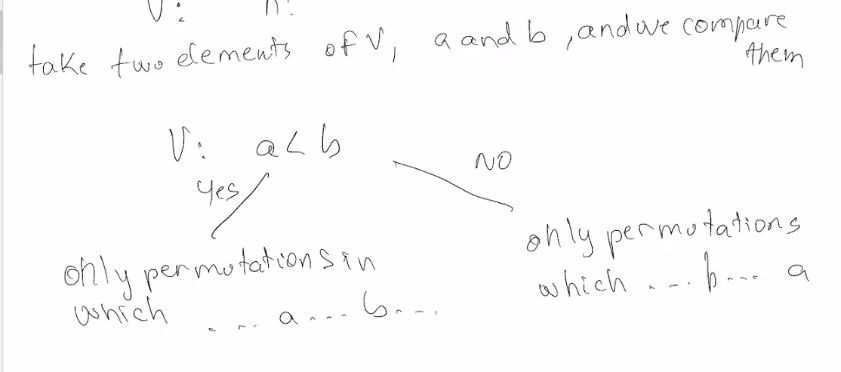 V: n!
take two elements of V, a and b, and we compare
them
V: a < b
yes
NO
only permutations in
which ... a ... b ...
only permutations
which ... b ... a